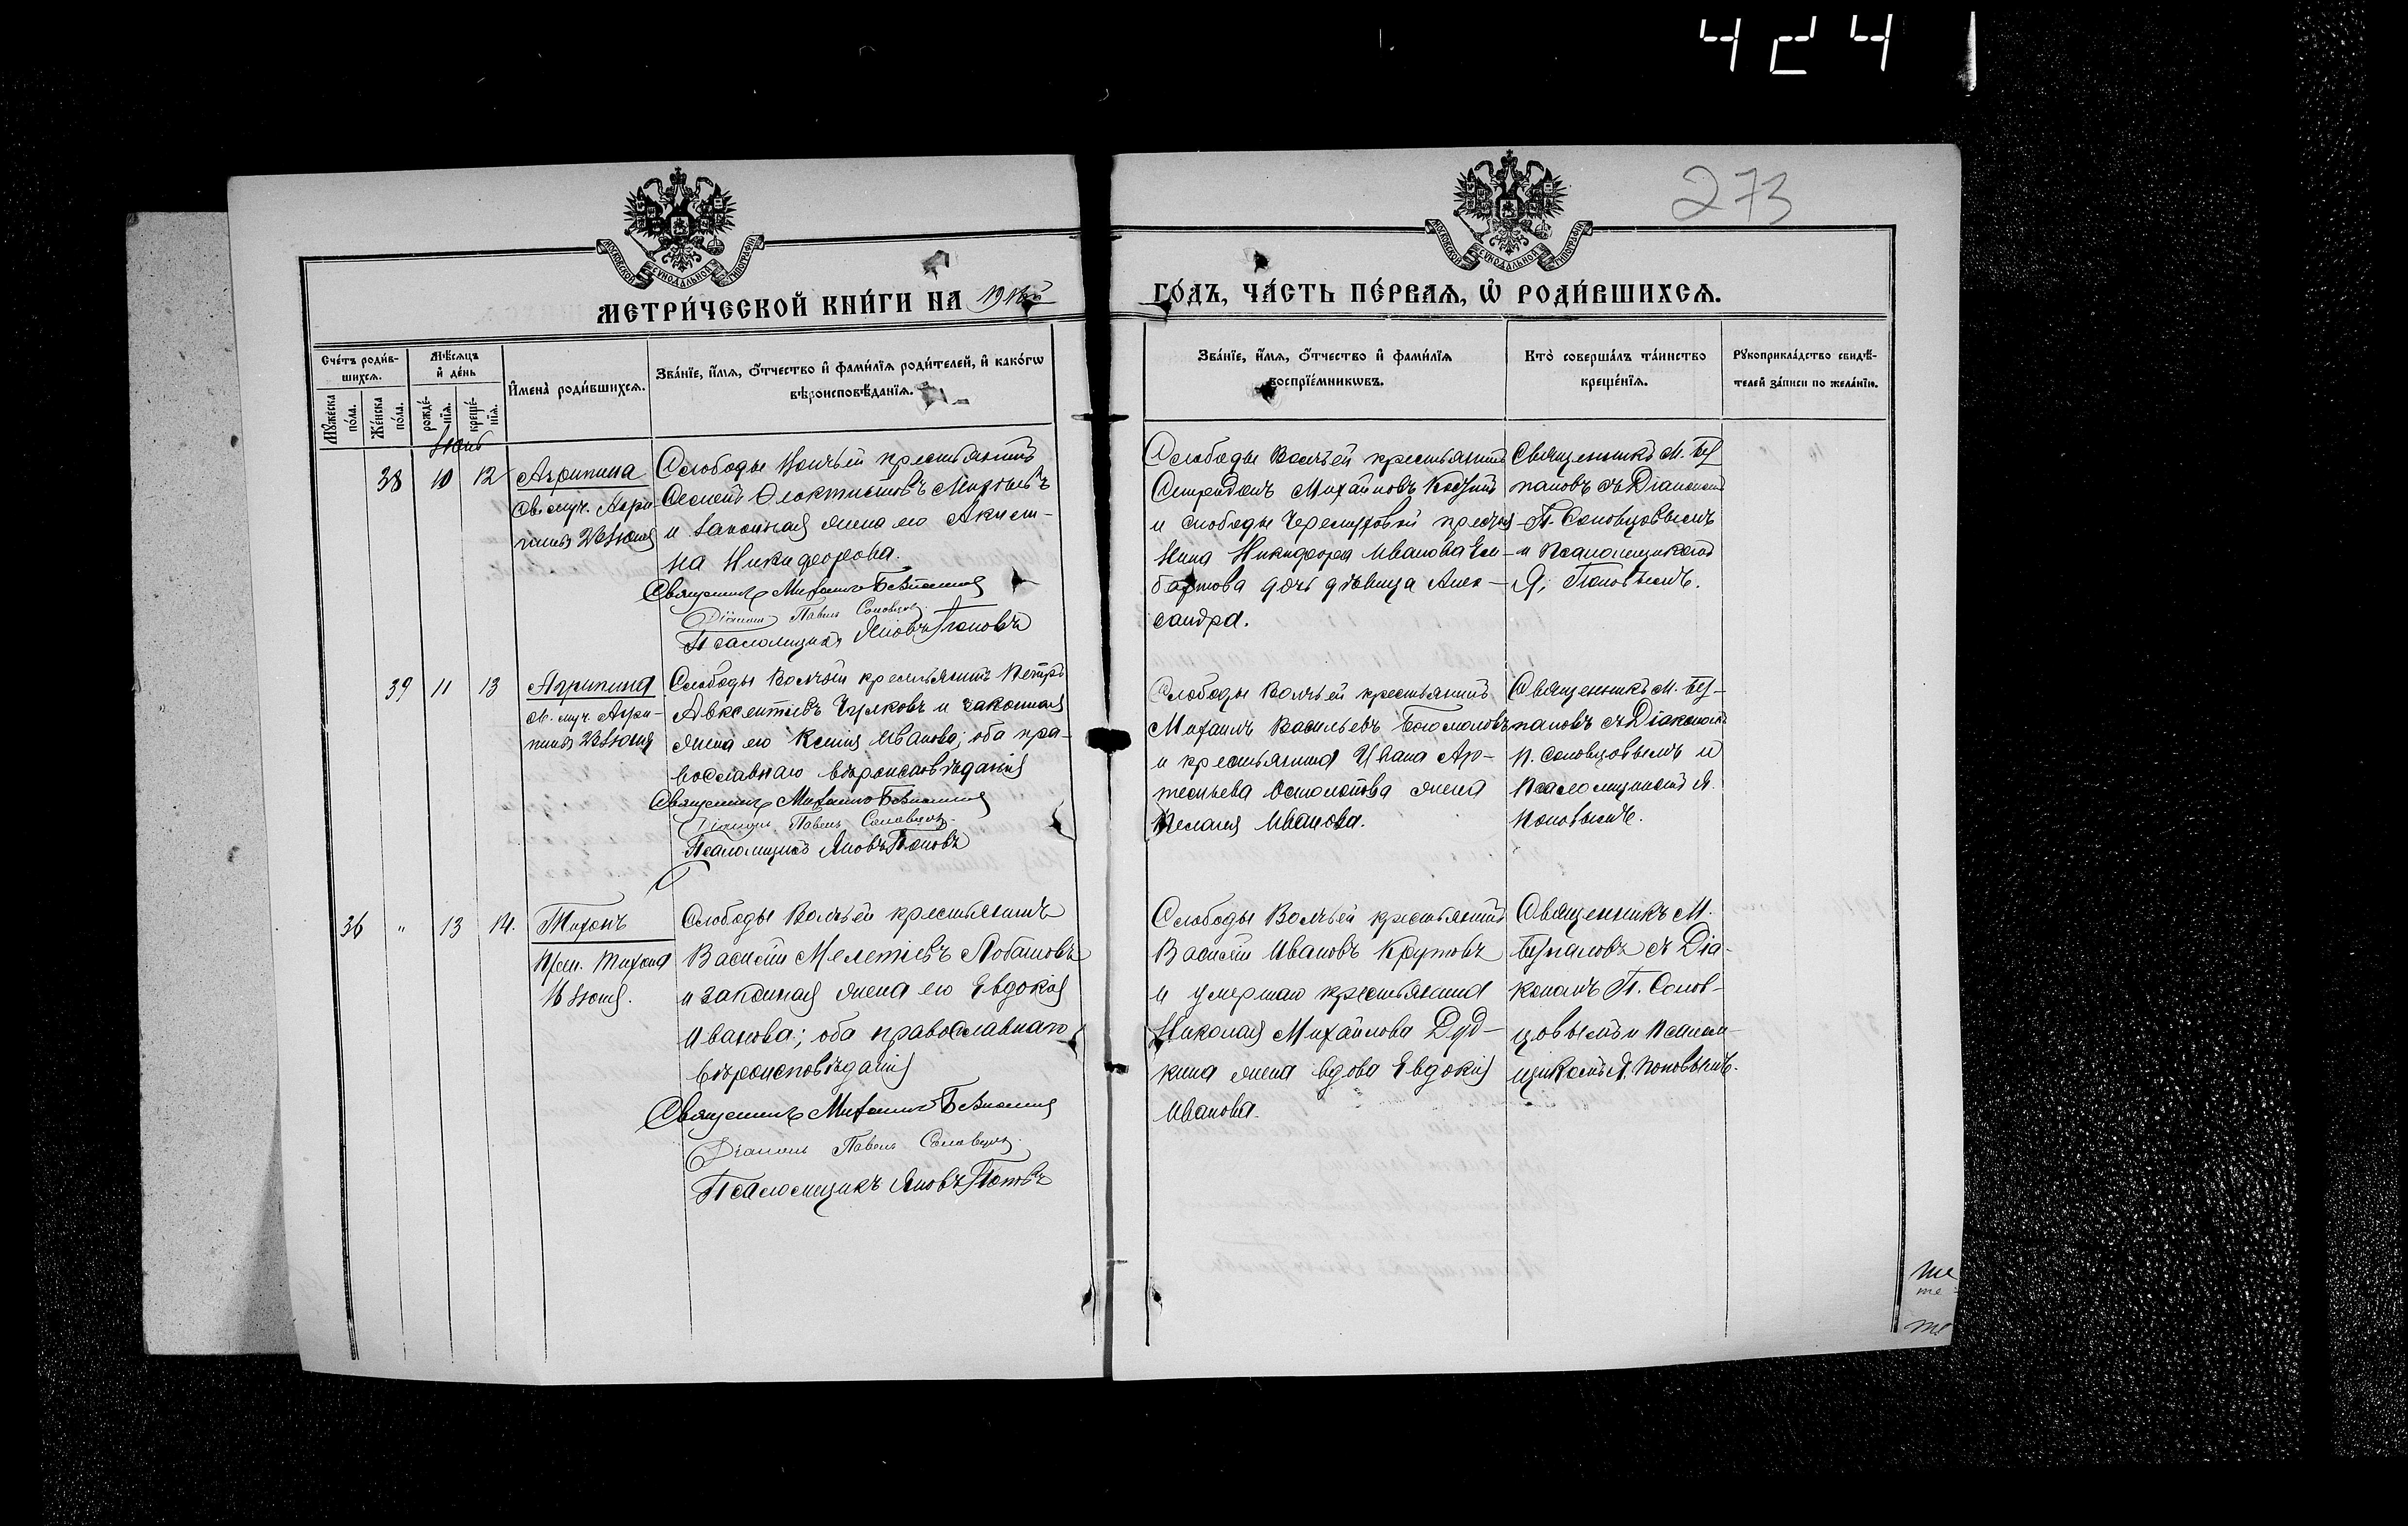 424
273
МОСКОВСКОЙ СѴНОДАЛЬНОЙ ТИПОГРАФІИ
МОСКОВСКОЙ СѴНОДАЛЬНОЙ ТИПОГРАФІИ
МЕТРИ́ЧЕСКОЙ КНИ́ГИ НА
ГО́ДЪ, ЧА́СТЬ ПЕ́РВАЯ, Ѽ РОДИ́ВШИХСЯ.
Сче́тъ роди́в-
шихся.
Мѣ́сяцъ
и҆ де́нь
Му́жеска
по́ла.
Же́нска
по́ла.
рожде́-
нїя.
креще́-
нїя.
И҆мена̀ роди́вшихся.
Зва́нїе, и҆́мя, ѻ҆́тчество и҆ фами́лїя роди́телей, и҆ како́гѡ
вѣроисповѣ́данїя.
Зва́нїе, и҆́мя, ѻ҆́тчество и҆ фами́лїя
воспрїе́мникѡвъ.
Кто̀ соверша́лъ та́инство
креще́нїя.
Рꙋкоприкла́дство свидѣ́-
телей за́писи по жела́нїю.
38 10 12 Агрипина
Св. муч. Агри-
пины 23 Іюня
Слободы Волчьей крестьянинъ
и законная жена его Акили-
на Никифорова.
Священникъ Михаилъ
Діаконъ Павелъ Соловцовъ
Псаломщикъ Яковъ Поповъ
Слободы Волчьей крестьянинъ
Спиридонъ Михайловъ
и слободы Черемуховой крестья-
нина Никифора Иванова
дочь дѣвица Алек-
сандра.
Священникъ М. Бу-
паловъ съ Діакономъ
П. Соловцовымъ
и Псаломщикомъ
Я. Поповымъ.
39 11 13 Агрипина
Св. муч. Агри-
пины 23 Іюня
Слободы Волчьей крестьянинъ Петръ
Авксентіевъ Чулковъ и законная
жена его Ксенія Иванова; оба пра-
вославнаго вѣроисповѣданія
Священникъ Михаилъ
Діаконъ Павелъ Соловцовъ
Псаломщикъ Яковъ Поповъ
Слободы Волчьей крестьянинъ
Михаилъ Васильевъ Богомоловъ
и крестьянина Ивана Ар-
темьева жена
Пелагія Иванова.
Священникъ М. Бу-
паловъ съ Діакономъ
П. Соловцовымъ и
Псаломщикомъ Я.
Поповымъ.
36 " 13 14. Тихонъ
Преп. Тихона
16 Іюня.
Слободы Волчьей крестьянинъ
Василій Мелетіевъ Лобановъ
и законная жена его Евдокія
Иванова; оба православнаго
вѣроисповѣданія
Священникъ Михаилъ
Діаконъ Павелъ Соловцовъ
Псаломщикъ Яковъ Поповъ
Слободы Волчьей крестьянинъ
Василій Ивановъ Крутовъ
и умершаго крестьянина
Николая Михайлова Дуд-
кина жена вдова Евдокія
Иванова.
Священникъ М.
Бупаловъ съ Діа-
кономъ П. Солов-
цовымъ и Псалом-
щикомъ Я. Поповымъ.